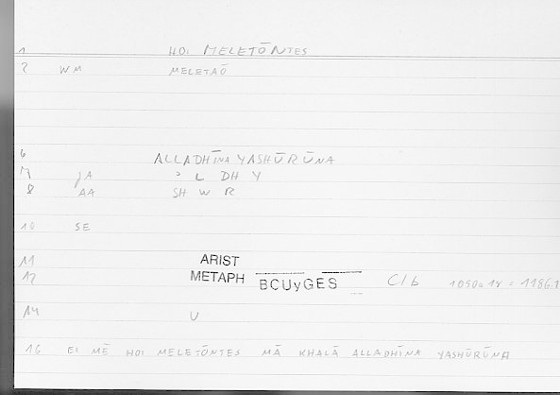 1 HOI MELETŌNTES
2 WM MELETAŌ
6 ALLADHĪNA YASHŪRŪNA
7 JA ʾ L DH Y
8 AA SH W R
10 SE
11 ARIST
12 METAPH BCUyGES C/b
14 U
16 EI MĒ HOI MELETŌNTES MĀ KHALĀ ALLADHĪNA YASHŪRŪNA